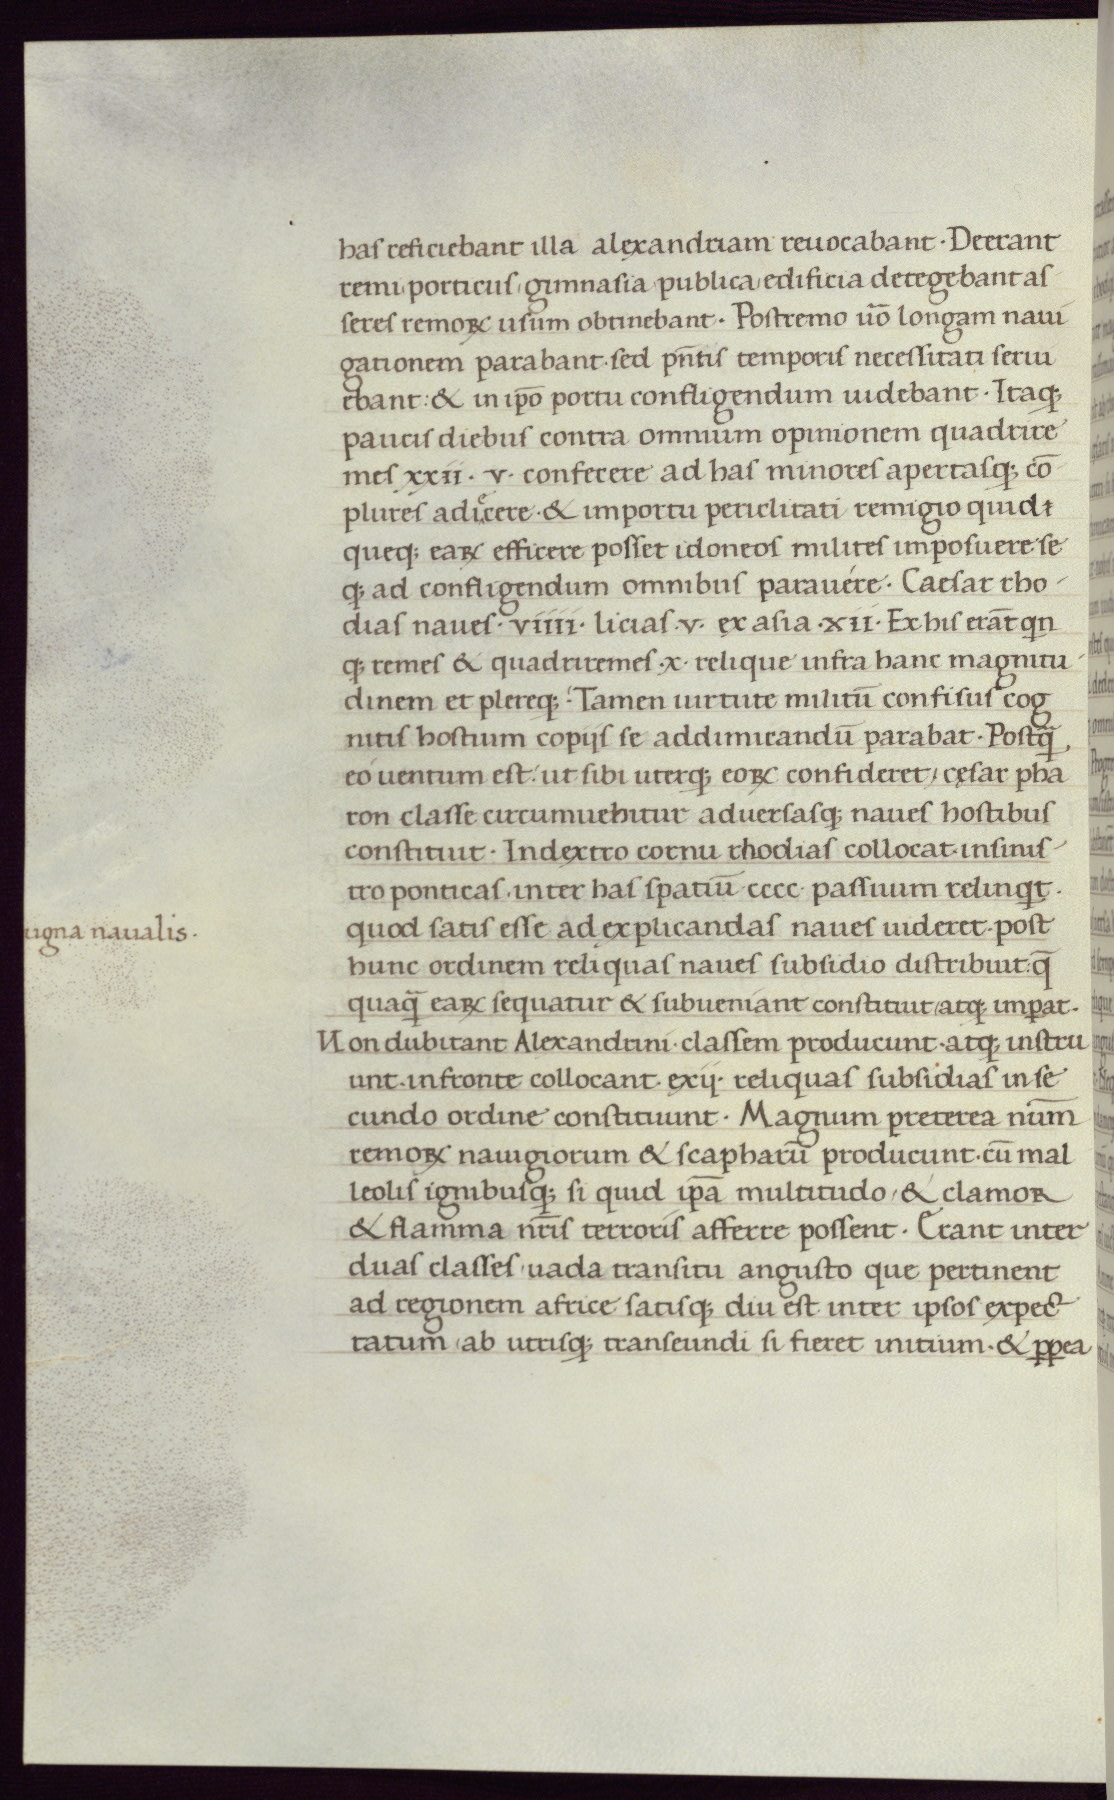 has reficiebant illa alexandriam reuocabant · Deerant
remi, porticus, gimnasia, publica, edificia detegebant as
seres remoꝝ usum obtinebant · Postremo uo᷒ longam naui
gationem parabant · sed pn̄tis temporis necessitati serui
ebant: & in ip̄o portu confligendum uidebant · Itaqꝫ
paucis diebus contra omnium opinionem quadrire
mes xxii · v · confecere ad has minores apertasqꝫ cō
plures adicere · & in portu periclitati remigio quid
queqꝫ eaꝝ efficere posset idoneos milites imposuere se
qꝫ ad confligendum omnibus parauére · Caesar rho
dias naues · viiii · licias · v · ex asia · xii · Ex his erāt qn
qꝫ remes & quadriremes · x · relique infra hanc magnitu
dinem et plereqꝫ · Tamen uirtute militū confisus cog
nitis hostium copijs se addimicandū parabat · Postq̄
eo uentum est: ut sibi uterqꝫ eoꝝ confideret, cęsar pha
ron classe circumuehitur aduersasqꝫ naues hostibus
constituit · Indextro cornu rhodias collocat · insinis
tro ponticas, inter has spatiū · cccc · passuum relinqt ·
quod satis esse ad explicandas naues uideret · post
hunc ordinem reliquas naues subsidio distribuit: q̄
quaq̄ eaꝝ sequatur & subueniant constituit, atqꝫ imꝑat ·
ugna naualis ·
Non dubitant Alexandrini · classem producunt · atqꝫ instru
unt · infronte collocant · exij · reliquas subsidias in se
cundo ordine constituunt · Magnum preterea num̄
remoꝝ nauigiorum & scapharū producunt · cū mal
leolis ignibusqꝫ si quid ip̄a multitudo, & clamor
& flamma nr̄is terroris afferre possent · Erant inter
duas classes, uada transitu angusto que pertinent
ad regionem africe satisqꝫ diu est inter ipsos expec
tatum, ab utrisqꝫ transeundi si fieret initium · & ꝓpea